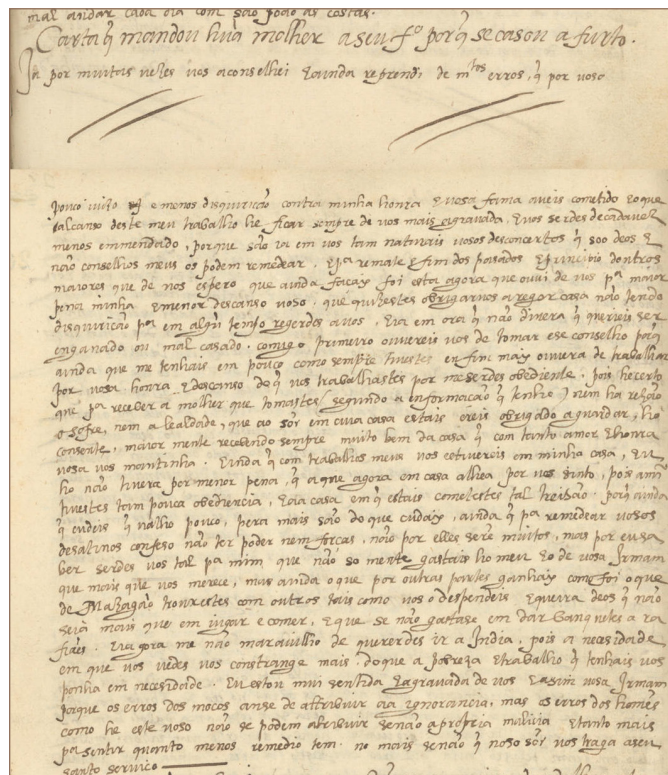 mal andar cada dia com são João as costas.
Carta q̃ mandou hũa molher a seu fº porq̃ se casou a furto.
Ja por muitas vezes vos aconselhei E ainda reprendi de mtos erros, q̃ por voso
pouco juizo e menos disquirição contra minha honra E vosa fama aveis cometido E o que
alcanso deste meu trabalho he ficar sempre de vos mais agravada, E vos serdes de cada vez
menos emmendado, porque são ia em vos tam naturais vosos desconcertos q̃ soo deos E
não conselhos meus os podem remedear. E pª remate e fim dos pasados E principio doutros
maiores que de vos espero que ainda facais foi esta agora que ouui de vos pª maior
pena minha E menor descanso voso. que quisestes obrigarvos a reger casa não tendo
disquirição pª em algũ tempo regerdes a vos. E ia em ora q̃ não divera q̃ querieis ser
enganado ou mal casado. comigo primeiro ouvereis vos de tomar ese conselho porq̃
ainda que me tenhais em pouco como sempre tivestes en fim mais ouvera de trabalhar
por vosa honra E descanso do q̃ vos trabalhastes por me serdes obediente. pois he certo
que pª receber a molher que tomastes (segundo a informação q̃ tenho) nem ha rezão
o sofre, nem a lealdade, que ao sõr em cuia casa estais ereis obrigado a guardar, lho
consente, maior mente recebendo sempre muito bem da casa q̃ com tanto amor E honra
vosa vos mantinha. E inda q̃ com trabalhos meus vos estivereis em minha casa, Eu
ho não tivera por menor pena, q̃ a que agora em casa alhea por vos sinto, pois a mi
tivestes tam pouca obediencia, E a ia casa em q̃ estais cometestes tal treisão. porq̃ ainda
q̃ cudeis q̃ valho pouco, pera mais são do que cudais, ainda q̃ pª remedear vosos
desatinos confeso não ter poder nem forcas, não por elles serẽ muitos, mas por eu sa
ber serdes vos tal pª mim, que não so mente gastais ho meu E o de vosa Irmam
que mais que vos merece, mas ainda o que por outras partes ganhais como foi o que
de Mazagão trouxestes com outros tais como vos o despendeis E quera deos q̃ não
seia mais que em jugar e comer, E que se não gastase em dar banquetes a ra
fiães. E ia gora me não maravilho de quererdes ir a India, pois a necesidade
em que vos vedes vos constrange mais. do que a pobreza E trabalho q̃ tenhais vos
ponha em necesidade. Eu estou mui sentida E agravada de vos E asim vosa Irmam
porque os erros dos mocos anse de attribuir aa ignorancia, mas os erros dos homẽs
como he este voso não se podem atribuir senão a propria malicia E tanto mais
pª sentir quanto menos remedio tem. no mais senão q̃ noso sõr vos traga a seu
santo serviço